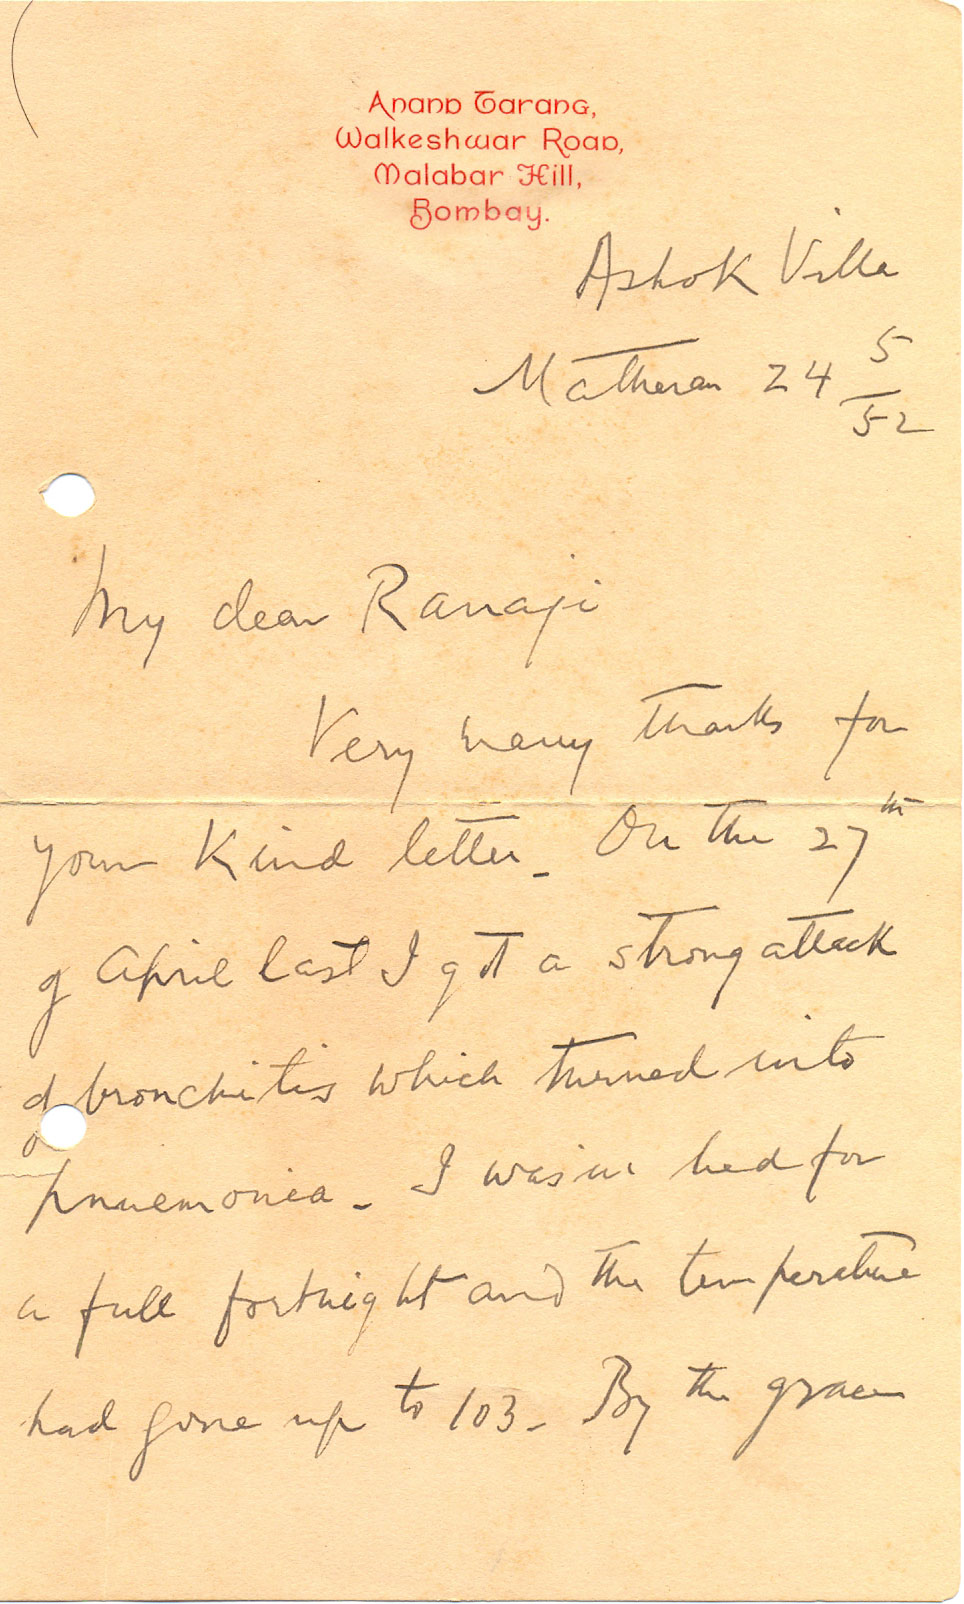 Anand Tarang,
Walkeshwar Road,
Malabar Hill,
Bombay.
Ashok Villa
Matheran 24 5/52
My dear Ranaji
Very many thanks for
your kind letter_ On the 27th
of April last I got a strong attack
of bronchitis which turned into
pnuemonia_ I was in bed for
a full fortnight and the temperature
had gone up to 103_ By the grace